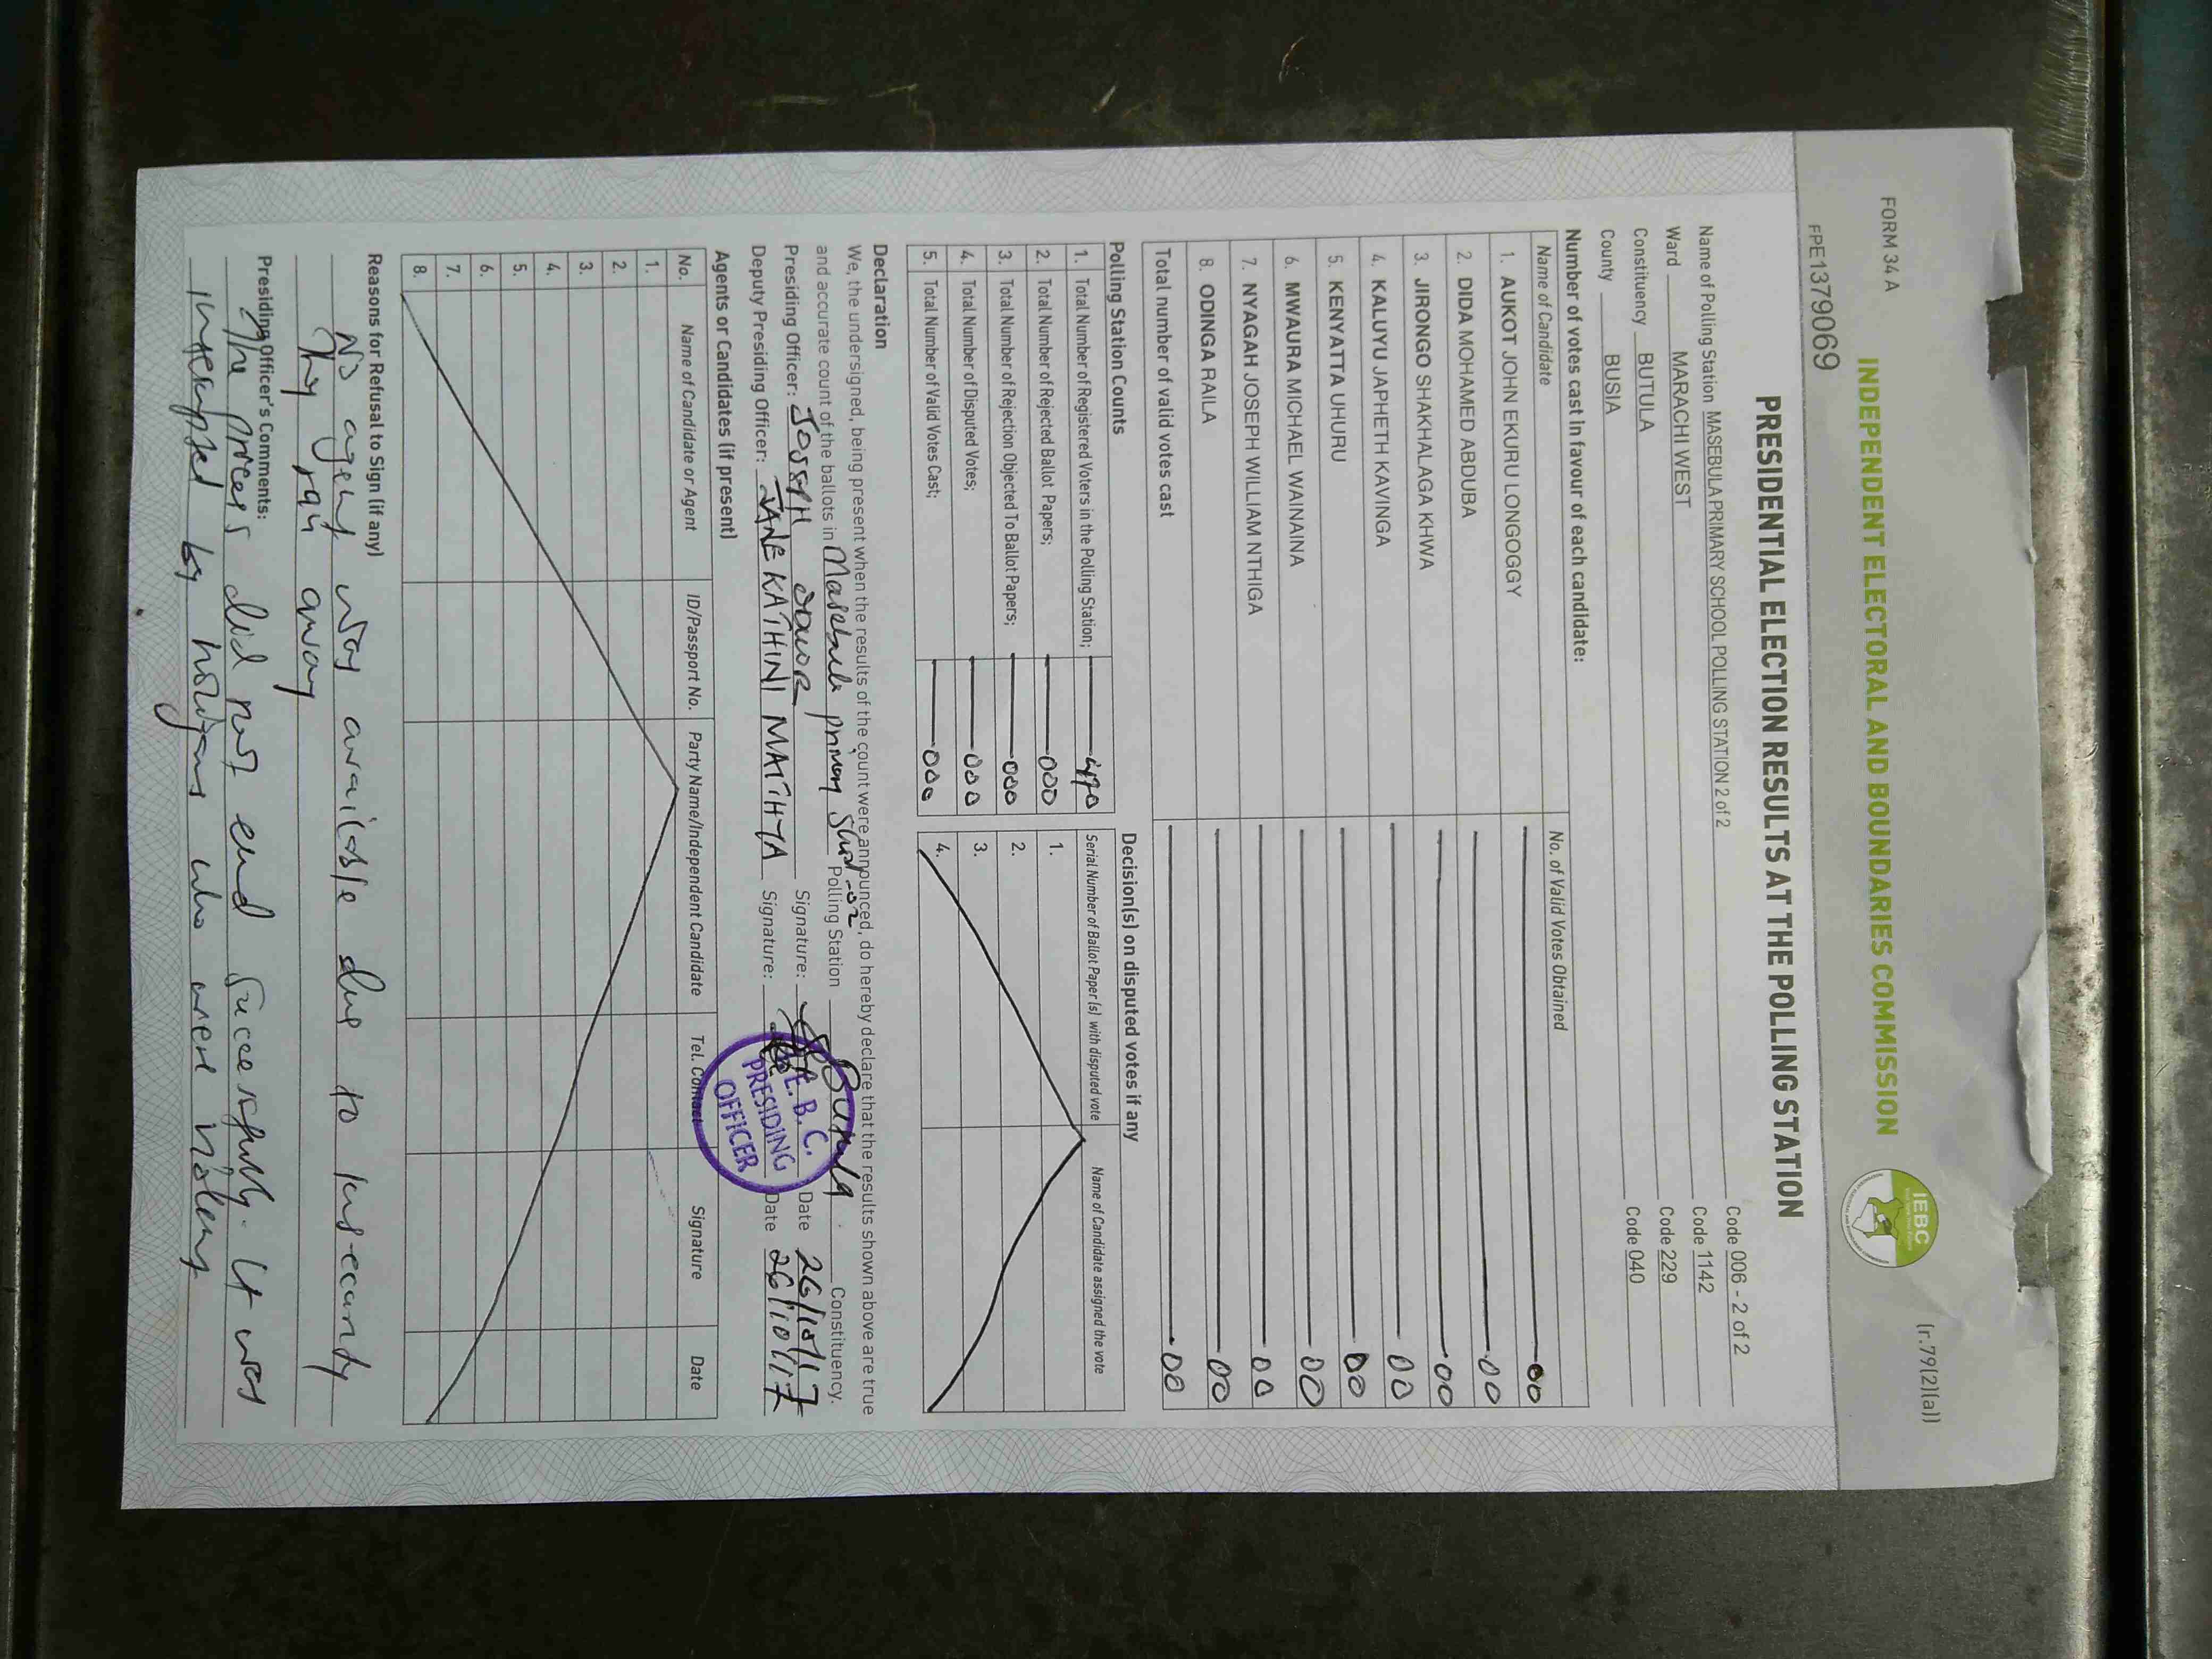 FORM 34 A
(r.79(2)(a))
INDEPENDENT ELECTORAL AND BOUNDARIES COMMISSION
IEBC
FPE1379069
PRESIDENTIAL ELECTION RESULTS AT THE POLLING STATION
Name of Polling Station MASEBULA PRIMARY SCHOOL POLLING STATION 2 of 2 Code 006 - 2 of 2
Ward MARACHI WEST Code 1142
Constituency BUTULA Code 229
County BUSIA Code 040
Number of votes cast in favour of each candidate:
Name of Candidate No. of Valid Votes Obtained
1. AUKOT JOHN EKURU LONGOGGY 00
2. DIDA MOHAMED ABDUBA 00
3. JIRONGO SHAKHALAGA KHWA 00
4. KALUYU JAPHETH KAVINGA 00
5. KENYATTA UHURU 00
6. MWAURA MICHAEL WAINAINA 00
7. NYAGAH JOSEPH WILLIAM NTHIGA 00
8. ODINGA RAILA 00
Total number of valid votes cast 00
Polling Station Counts
1. Total Number of Registered Voters in the Polling Station; 470
2. Total Number of Rejected Ballot Papers; 000
3. Total Number of Rejection Objected To Ballot Papers; 000
4. Total Number of Disputed Votes; 000
5. Total Number of Valid Votes Cast; 000
Decision(s) on disputed votes if any
Serial Number of Ballot Paper(s) with disputed vote Name of Candidate assigned the vote
1.
2.
3.
4.
Declaration
We, the undersigned, being present when the results of the count were announced, do hereby declare that the results shown above are true
and accurate count of the ballots in Masebula primary -02 Polling Station Butula Constituency.
Presiding Officer: JOSEPH ODUOR Signature: Date 26/10/17
Deputy Presiding Officer: JANE KATHINI MAITHYA Signature: Date 26/10/17
I.E.B.C.
PRESIDING
OFFICER
Agents or Candidates (if present)
No. Name of Candidate or Agent ID/Passport No. Party Name/Independent Candidate Tel. Contact Signature Date
1.
2.
3.
4.
5.
6.
7.
8.
Reasons for Refusal to Sign (if any)
No agent was available due to ins-ecurity
They ran away
Presiding Officer's Comments:
The process did not end successfully. It was
interrupted by hooligans who were violent